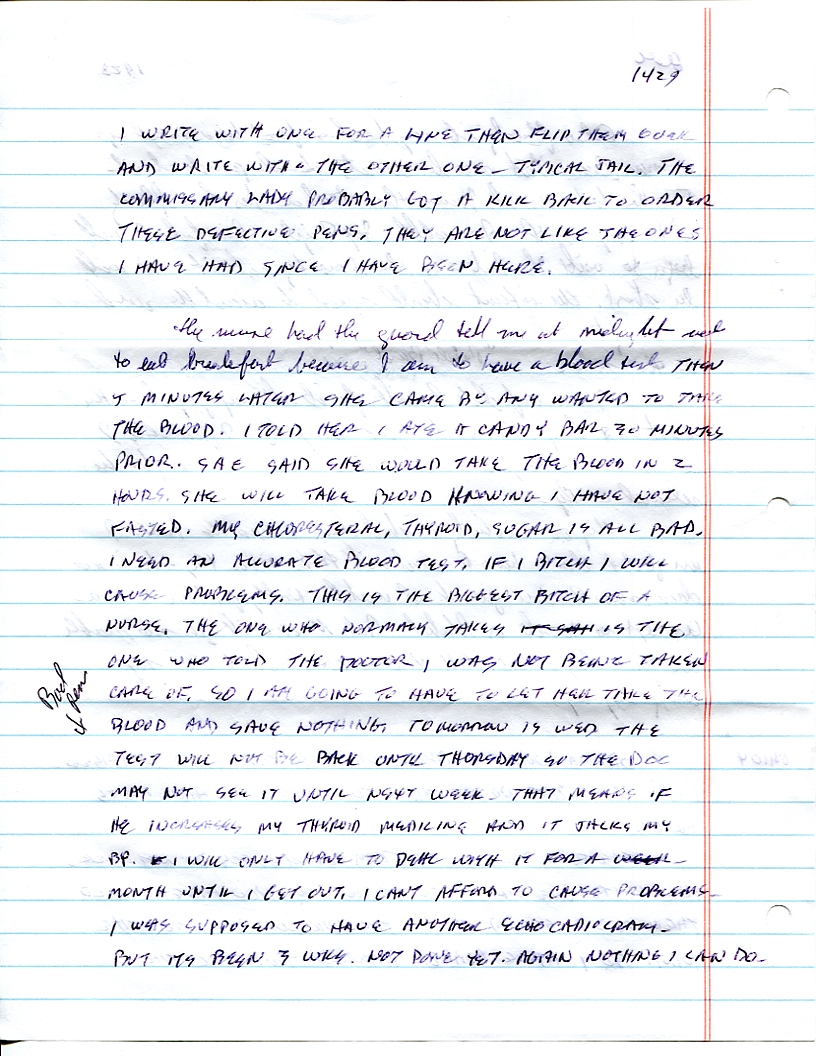 1429
I WRITE WITH ONE FOR A LINE THEN FLIP THEM OVER
AND WRITE WITH THE OTHER ONE - TYPICAL JAIL. THE
COMMISSARY LADY PROBABLY GOT A KICK BACK TO ORDER
THESE DEFECTIVE PENS. THEY ARE NOT LIKE THE ONES
I HAVE HAD SINCE I HAVE BEEN HERE.
The nurse had the guard tell me at midnight not
to eat breakfast because I am to have a blood test THEN
5 MINUTES LATER SHE CAME BY ANY WANTED TO TAKE
THE BLOOD. I TOLD HER I ATE A CANDY BAR 30 MINUTES
PRIOR. SHE SAID SHE WOULD TAKE THE BLOOD IN 2
HOURS. SHE WILL TAKE BLOOD KNOWING I HAVE NOT
FASTED. MY CHLORESTERAL, THYROID, SUGAR IS ALL BAD.
I NEED AN ACCURATE BLOOD TEST. IF I BITCH I WILL
CAUSE PROBLEMS. THIS IS THE BIGGEST BITCH OF A
NURSE. THE ONE WHO NORMALY TAKES IS THE
ONE WHO TOLD THE DOCTOR I WAS NOT BEING TAKEN
CARE OF. SO I AM GOING TO HAVE TO LET HER TAKE THE
Bad
Pen
BLOOD AND SAVE NOTHING. TOMORROW IS WED THE
TEST WILL NOT BE BACK UNTIL THURSDAY SO THE DOC
MAY NOT SEE IT UNTIL NEXT WEEK - THAT MEANS IF
HE INCREASES MY THYROID MEDICINE AND IT JACKS MY
BP. I WILL ONLY HAVE TO DEAL WITH IT FOR A
MONTH UNTIL I GET OUT. I CANT AFFORD TO CAUSE PROBLEMS-
I WAS SUPPOSED TO HAVE ANOTHER ECHOCADIOGRAM-
BUT ITS BEEN 3 WKS. NOT DONE YET. AGAIN NOTHING I CAN DO-